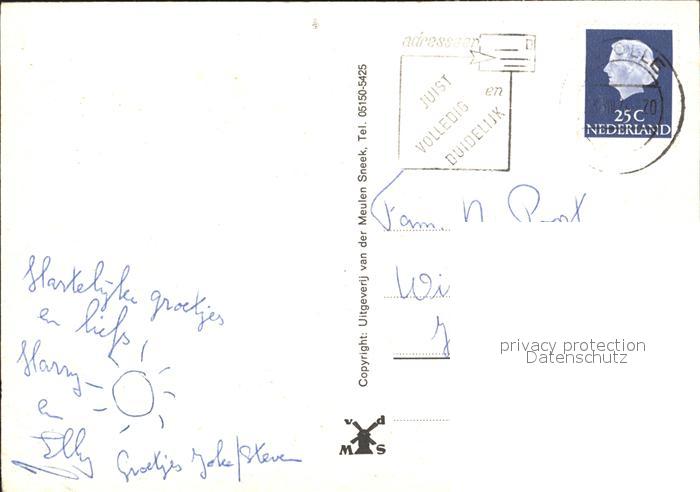 Hartelijke groetjes
en liefs
Harry
en
Elly
Groetjes Joke/Steven
Copyright: Uitgeverij van der Meulen Sneek, Tel. 05150-5425
v d
M S
adresseer
JUIST
VOLLEDIG en
DUIDELIJK
25C
NEDERLAND
Fam.
Wi
privacy protection
Datenschutz